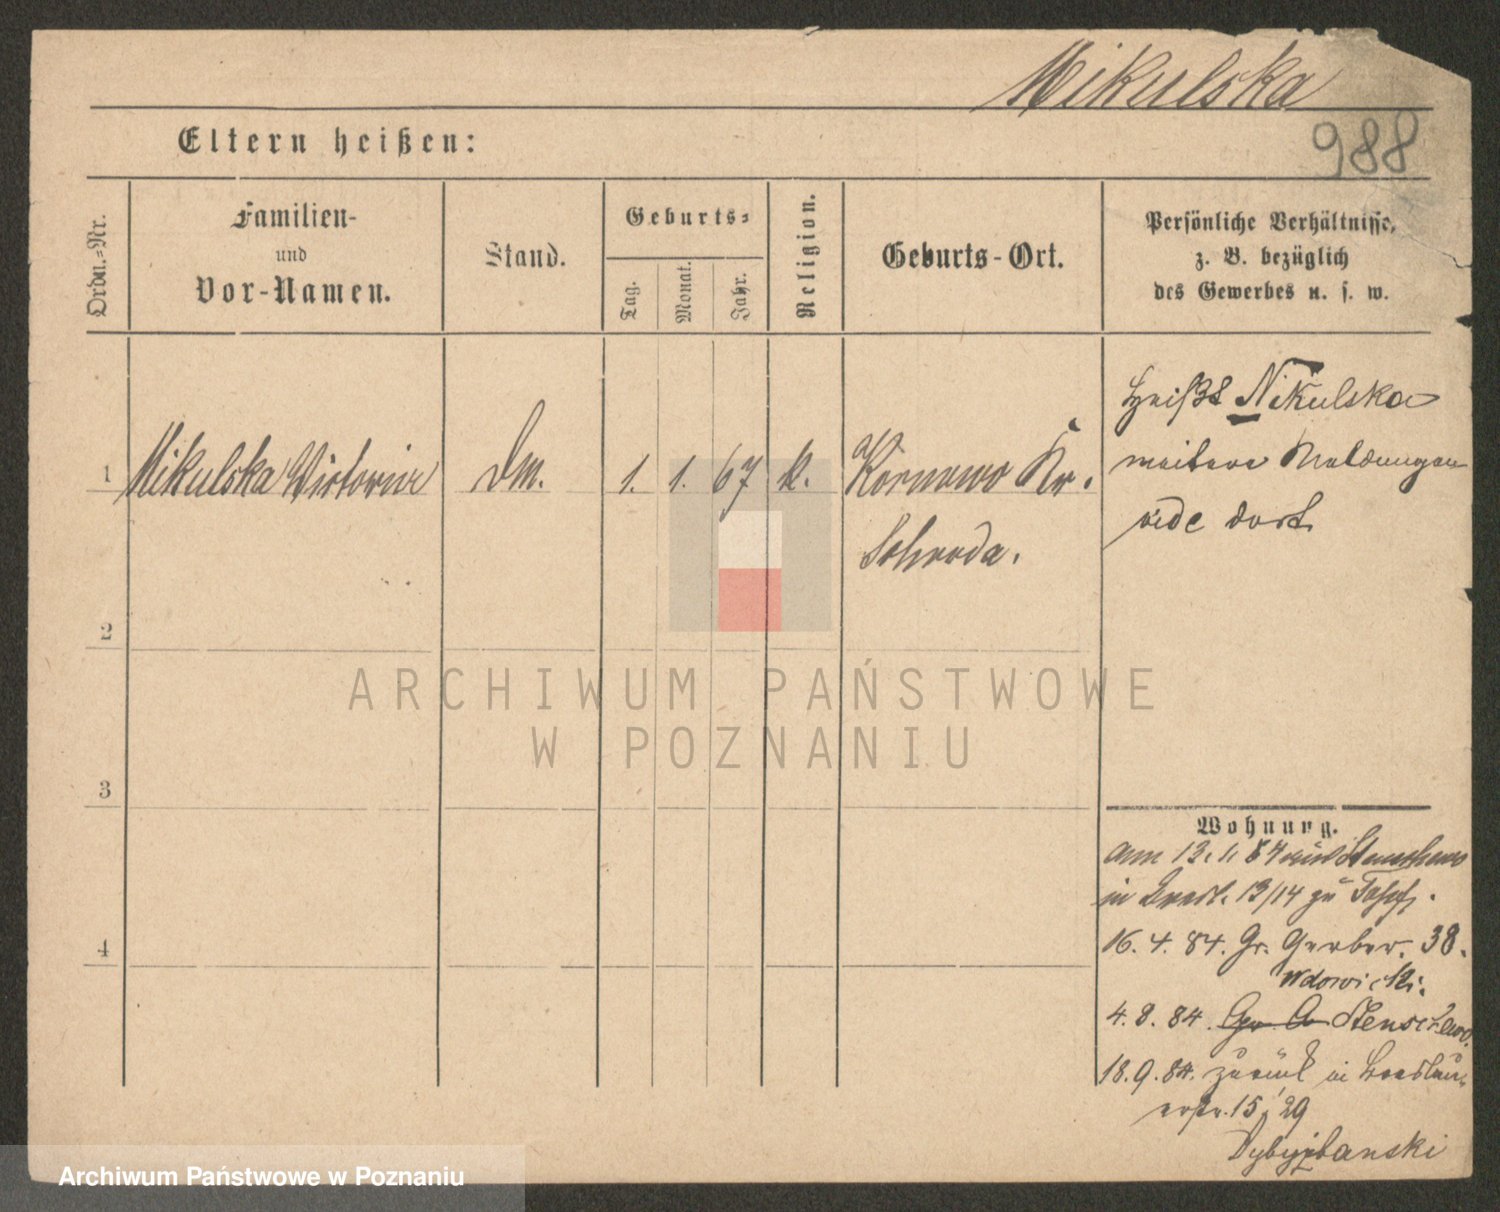 Mikulska
988
Eltern heißen:
Ordn.-Nr.
Familien-
und
Vor-Namen.
Stand.
Geburts-
Tag.
Monat.
Jahr.
Religion.
Geburts-Ort.
Persönliche Verhältnisse,
z. B. bezüglich
des Gewerbes u. s. w.
1
Mikulska Victoria
Dm.
1.
1.
67
k.
Kornowo Kr.
Schroda.
heißt Nikulska
weitere Meldungen
vide dort
2
3
4
Wohnung.
13. 1. 84
in Bresl. 13/14 zu
16. 4. 84. Gr. Gerber. 38.
Wdowicki.
4. 8. 84. Stenschewo.
18. 9. 84. zurück in Breslauer
str. 15, 29
Dybyzbanski
ARCHIWUM PAŃSTWOWE
W POZNANIU
Archiwum Państwowe w Poznaniu